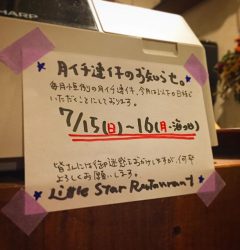 SHARP
月イチ連休のお知らせ。
毎月恒例の月イチ連休、今月は以下の日程で
いただくことにしております。
7/15(日)~16(月・海の日)
皆さんには御迷惑をおかけしますが、何卒
よろしくお願いします。
Little Star Restaurant